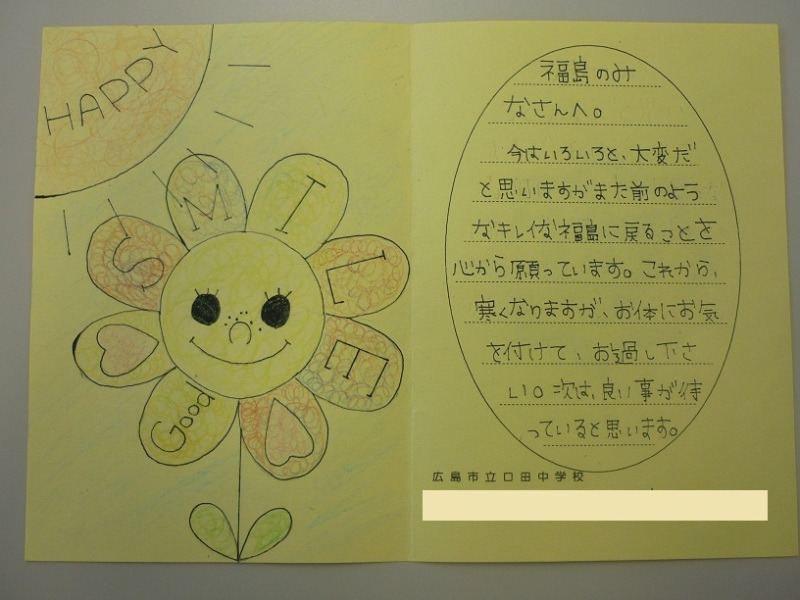 HAPPY
SMILE
Good
福島のみ
なさんへ。
今はいろいろと、大変だ
と思いますがまた前のよう
なキレイな福島に戻ることを
心から願っています。これから、
寒くなりますが、お体にお気
を付けて、お過し下さ
い。次は、良い事が待
っていると思います。
広島市立口田中学校